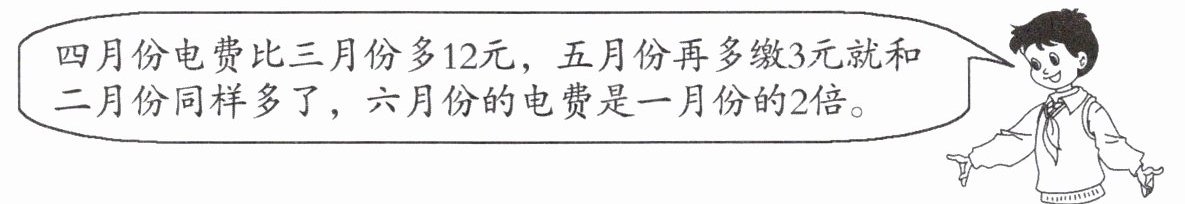 四月份电费比三月份多12元，五月份再多缴3元就和
二月份同样多了，六月份的电费是一月份的2倍。